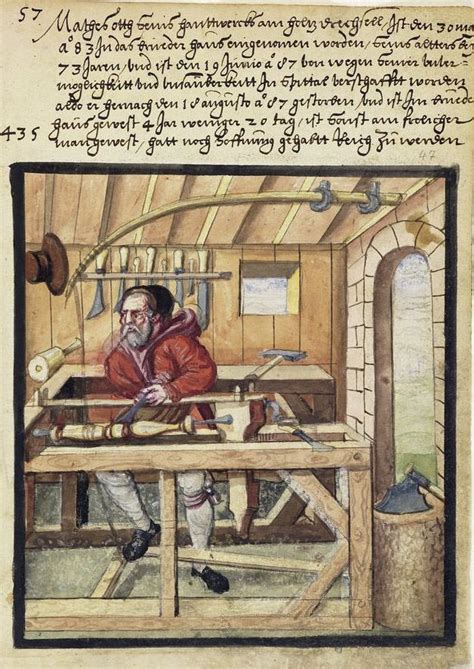 57 Mathes ott seins handtwercks am holz Drechsell, Ist den 30 ma
a° 83 In das brüeder haus eingenomen worden, seins alltens
73 Jaren, vnd ist den 19 Junio a° 87 von wegen seiner
vnd Im Spittal verschafft worden
alda er hernach den 18 augusto a° 87 gestorben, vnd ist Im brüed
435 haus gewest 4 Jar weniger 20 tag, ist sonst ain frölicher
man gewest, hatt noch hoffnung gehabtt Reich zu werden
47